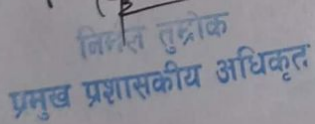 निर्मल तुम्रोक
प्रमुख प्रशासकीय अधिकृत